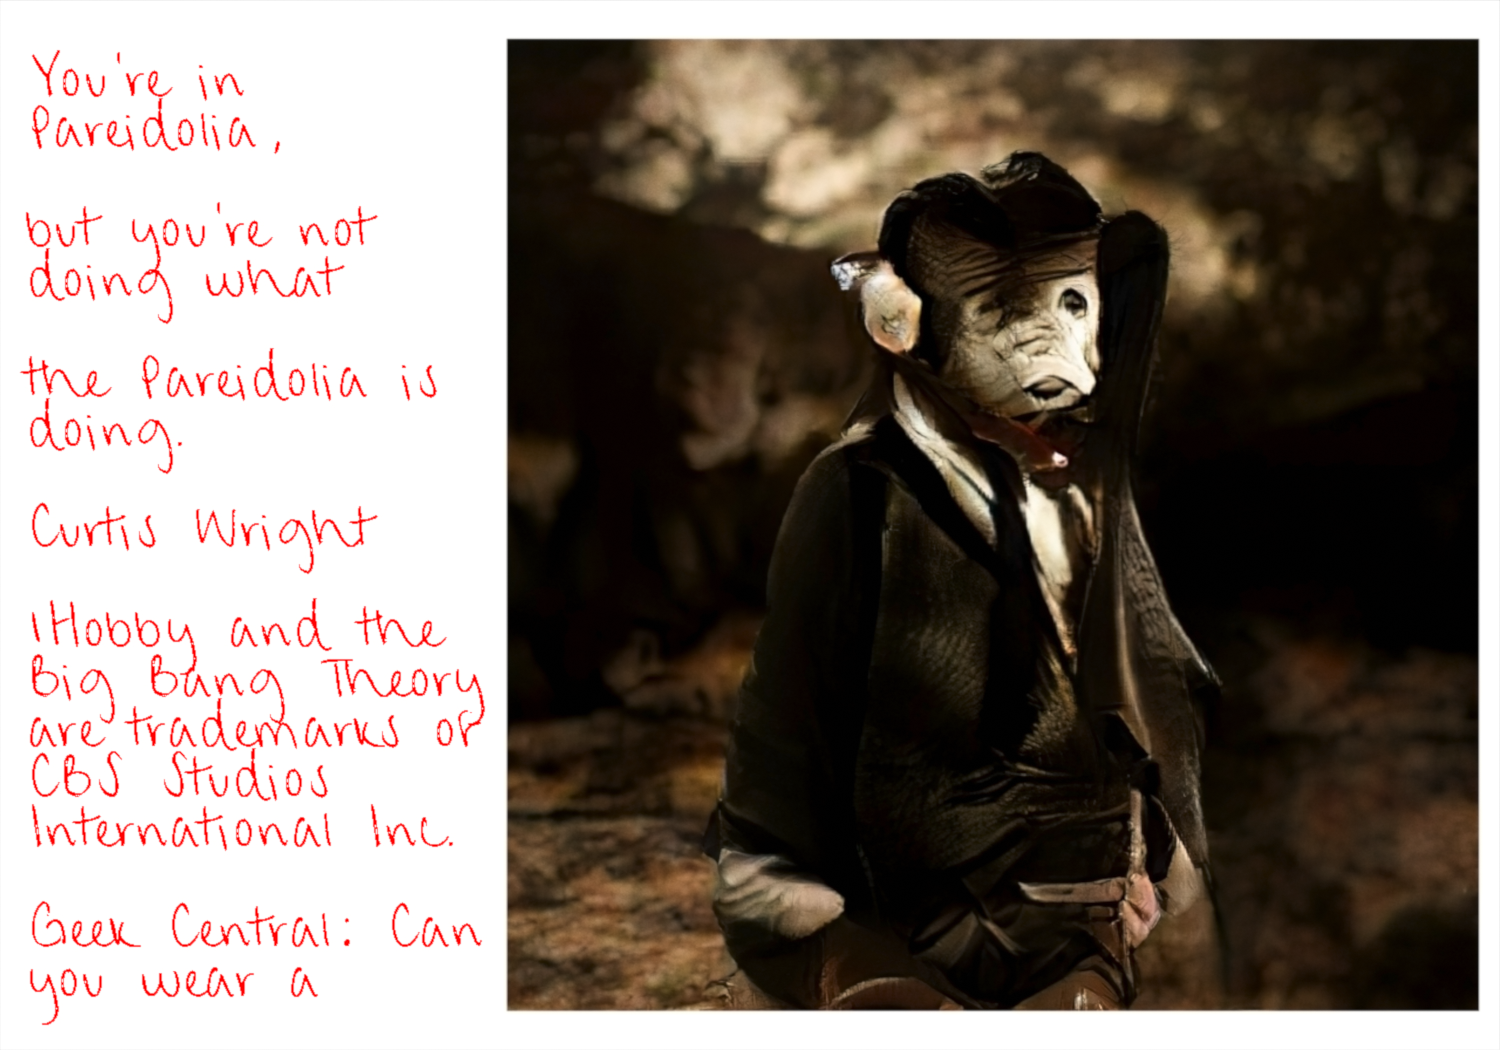 You're in
Pareidolia,
but you're not
doing what
the Pareidolia is
doing.
Curtis Wright
1Hobby and the
Big Bang Theory
are trademarks of
CBS Studios
International Inc.
Geek Central: Can
you wear a